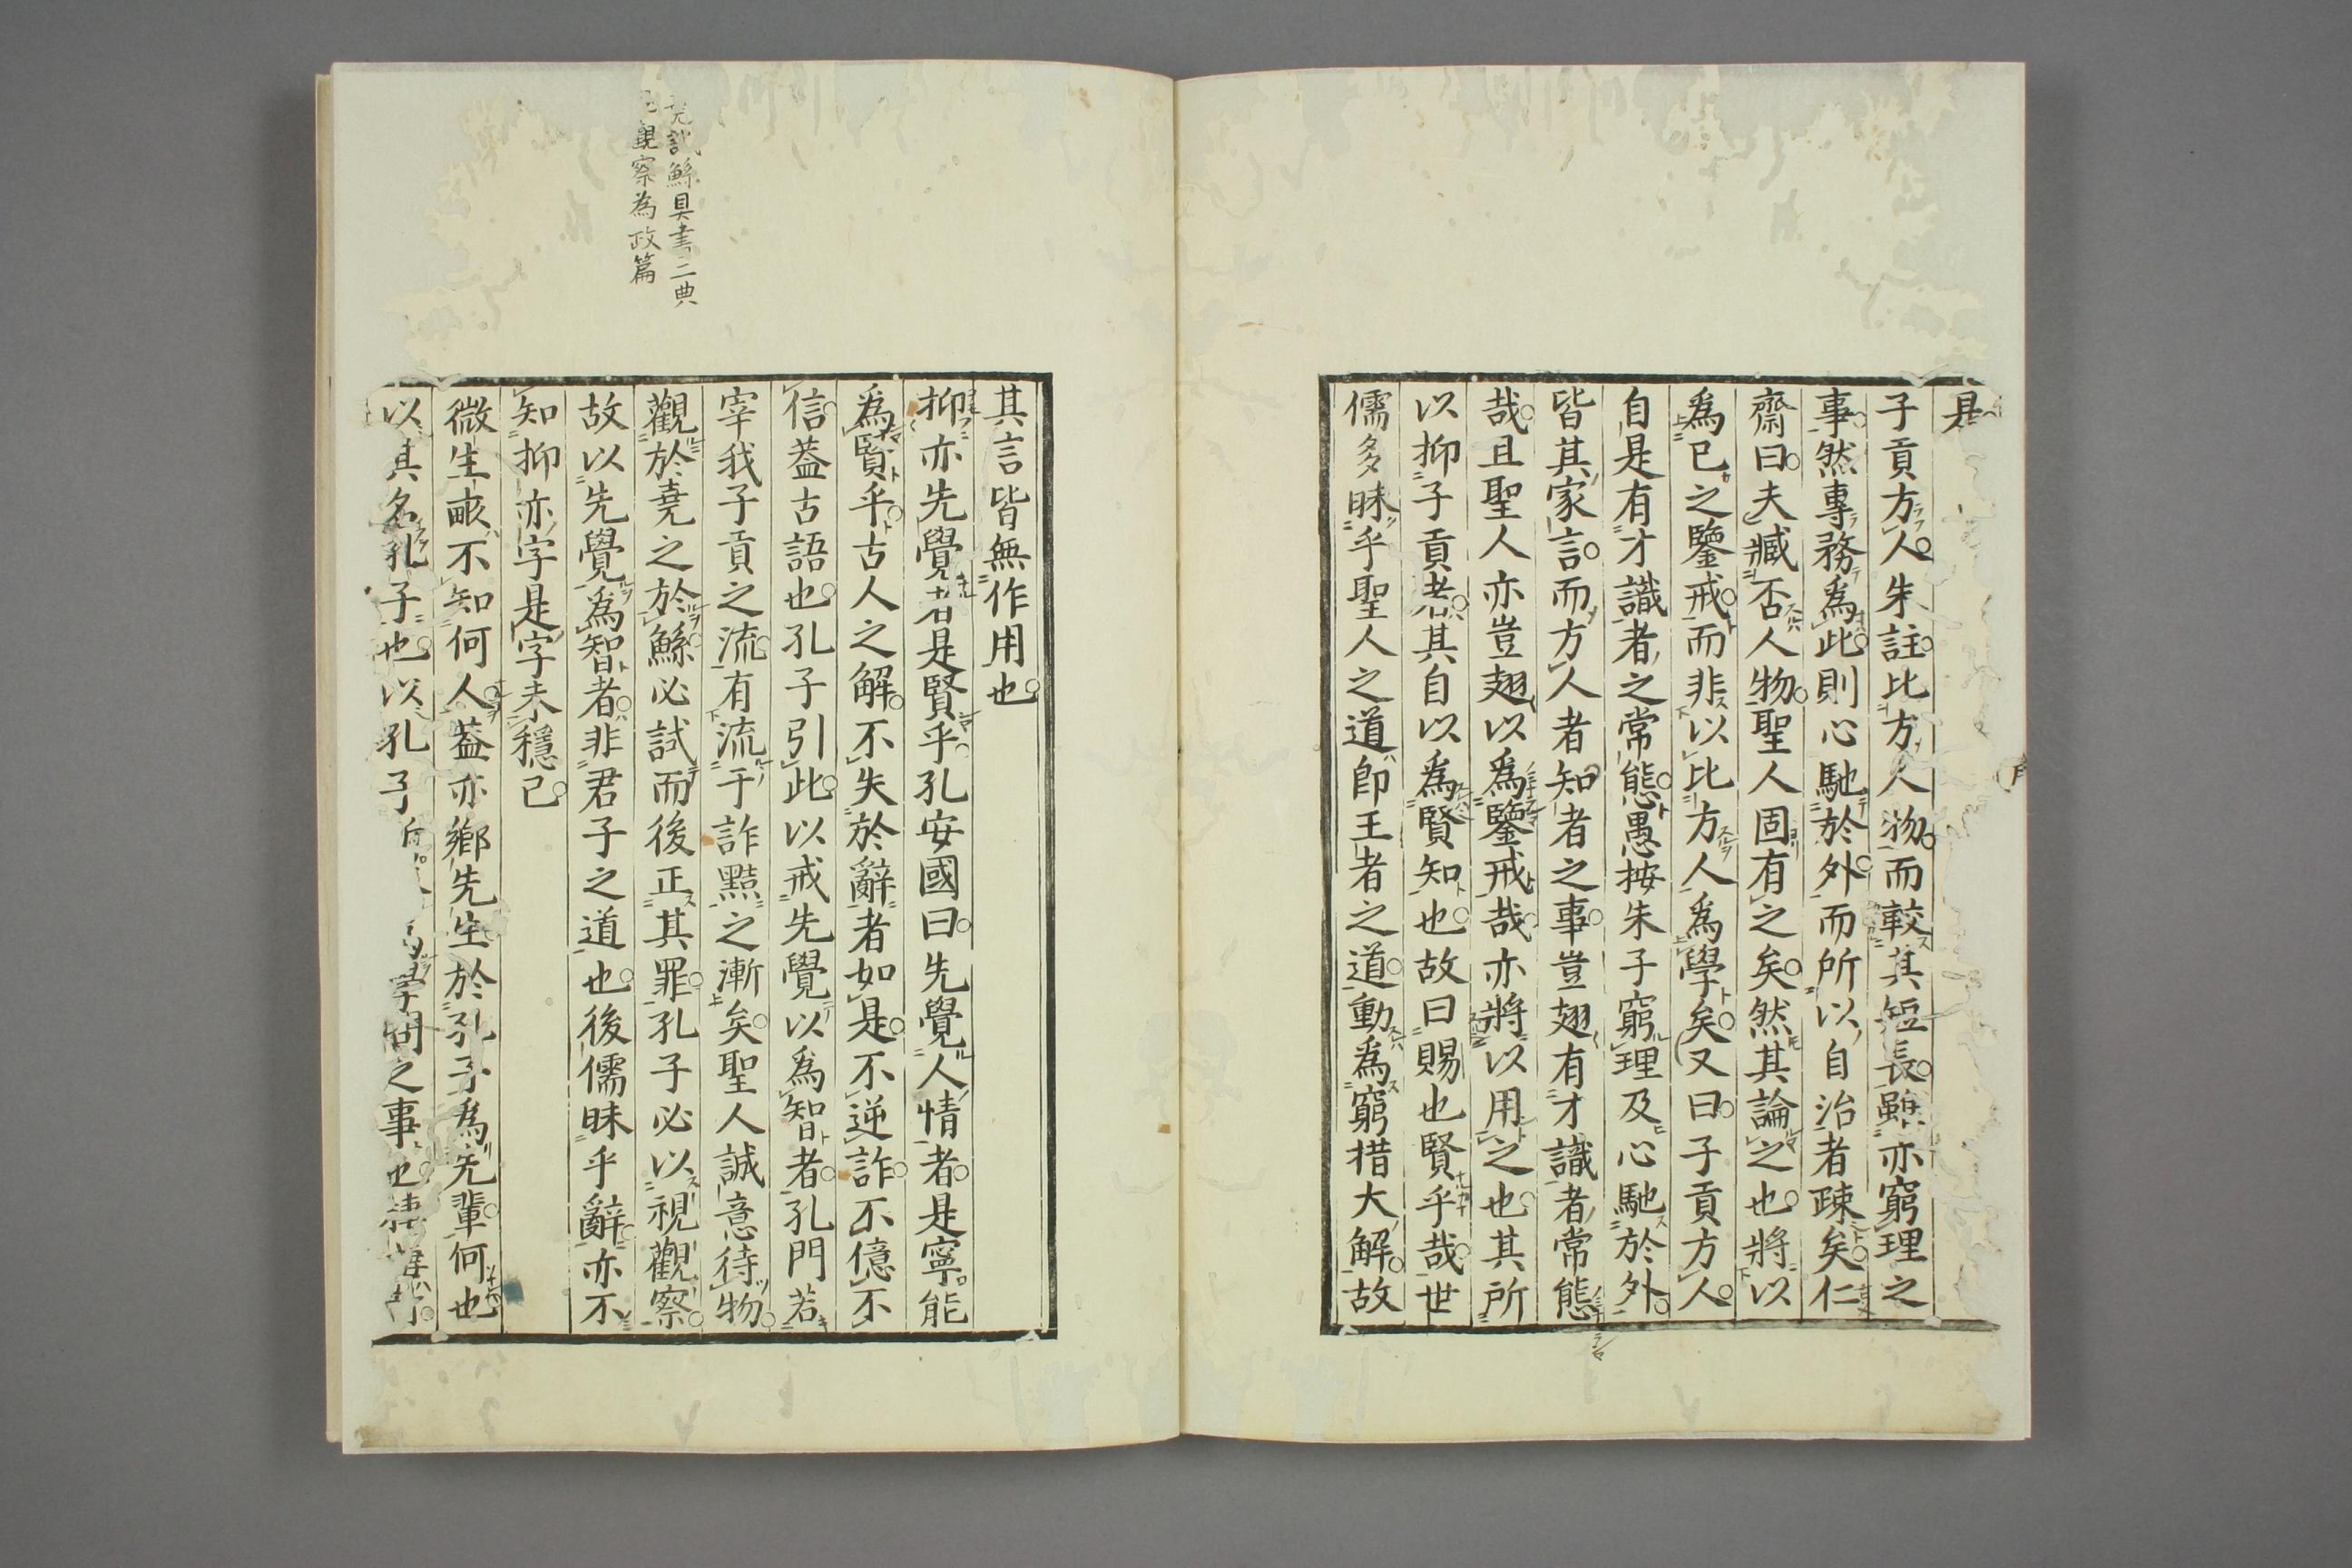 是
子貢方人朱註比方人物而較其短長雖亦窮理之
事然專務爲此則心馳於外而所以自治者疎矣仁
齋曰夫臧否人物聖人固有之矣然其論之也將以
爲已之鑒戒而非以比方人爲學矣又曰子貢方人
自是有才識者之常態愚按朱子窮理及心馳於外
皆其家言而方人者知者之事豈翅有才識者常態
哉且聖人亦豈翅以爲鑒戒哉亦將以用之也其所
以抑子貢者其自以爲賢知也故曰賜也賢乎哉世
儒多昧乎聖人之道即王者之道動爲窮措大解故
其言皆無作用也
抑亦先覺者是賢乎孔安國曰先覺人情者是寧能
爲賢乎古人之解不失於辭者如是不逆詐不億不
信蓋古語也孔子引此以戒先覺以爲智者孔門若
宰我子貢之流有流于詐黠之漸矣聖人誠意待物
觀於堯之於鯀必試而後正其罪孔子必以視觀察
故以先覺爲智者非君子之道也後儒昧乎辭亦不
知抑亦字是字未穩已
微生畝不知何人蓋亦鄉先生於孔子爲先輩何也
以其名孔子也以孔子 學問之事也
堯試鯀具書二典
觀察為政篇